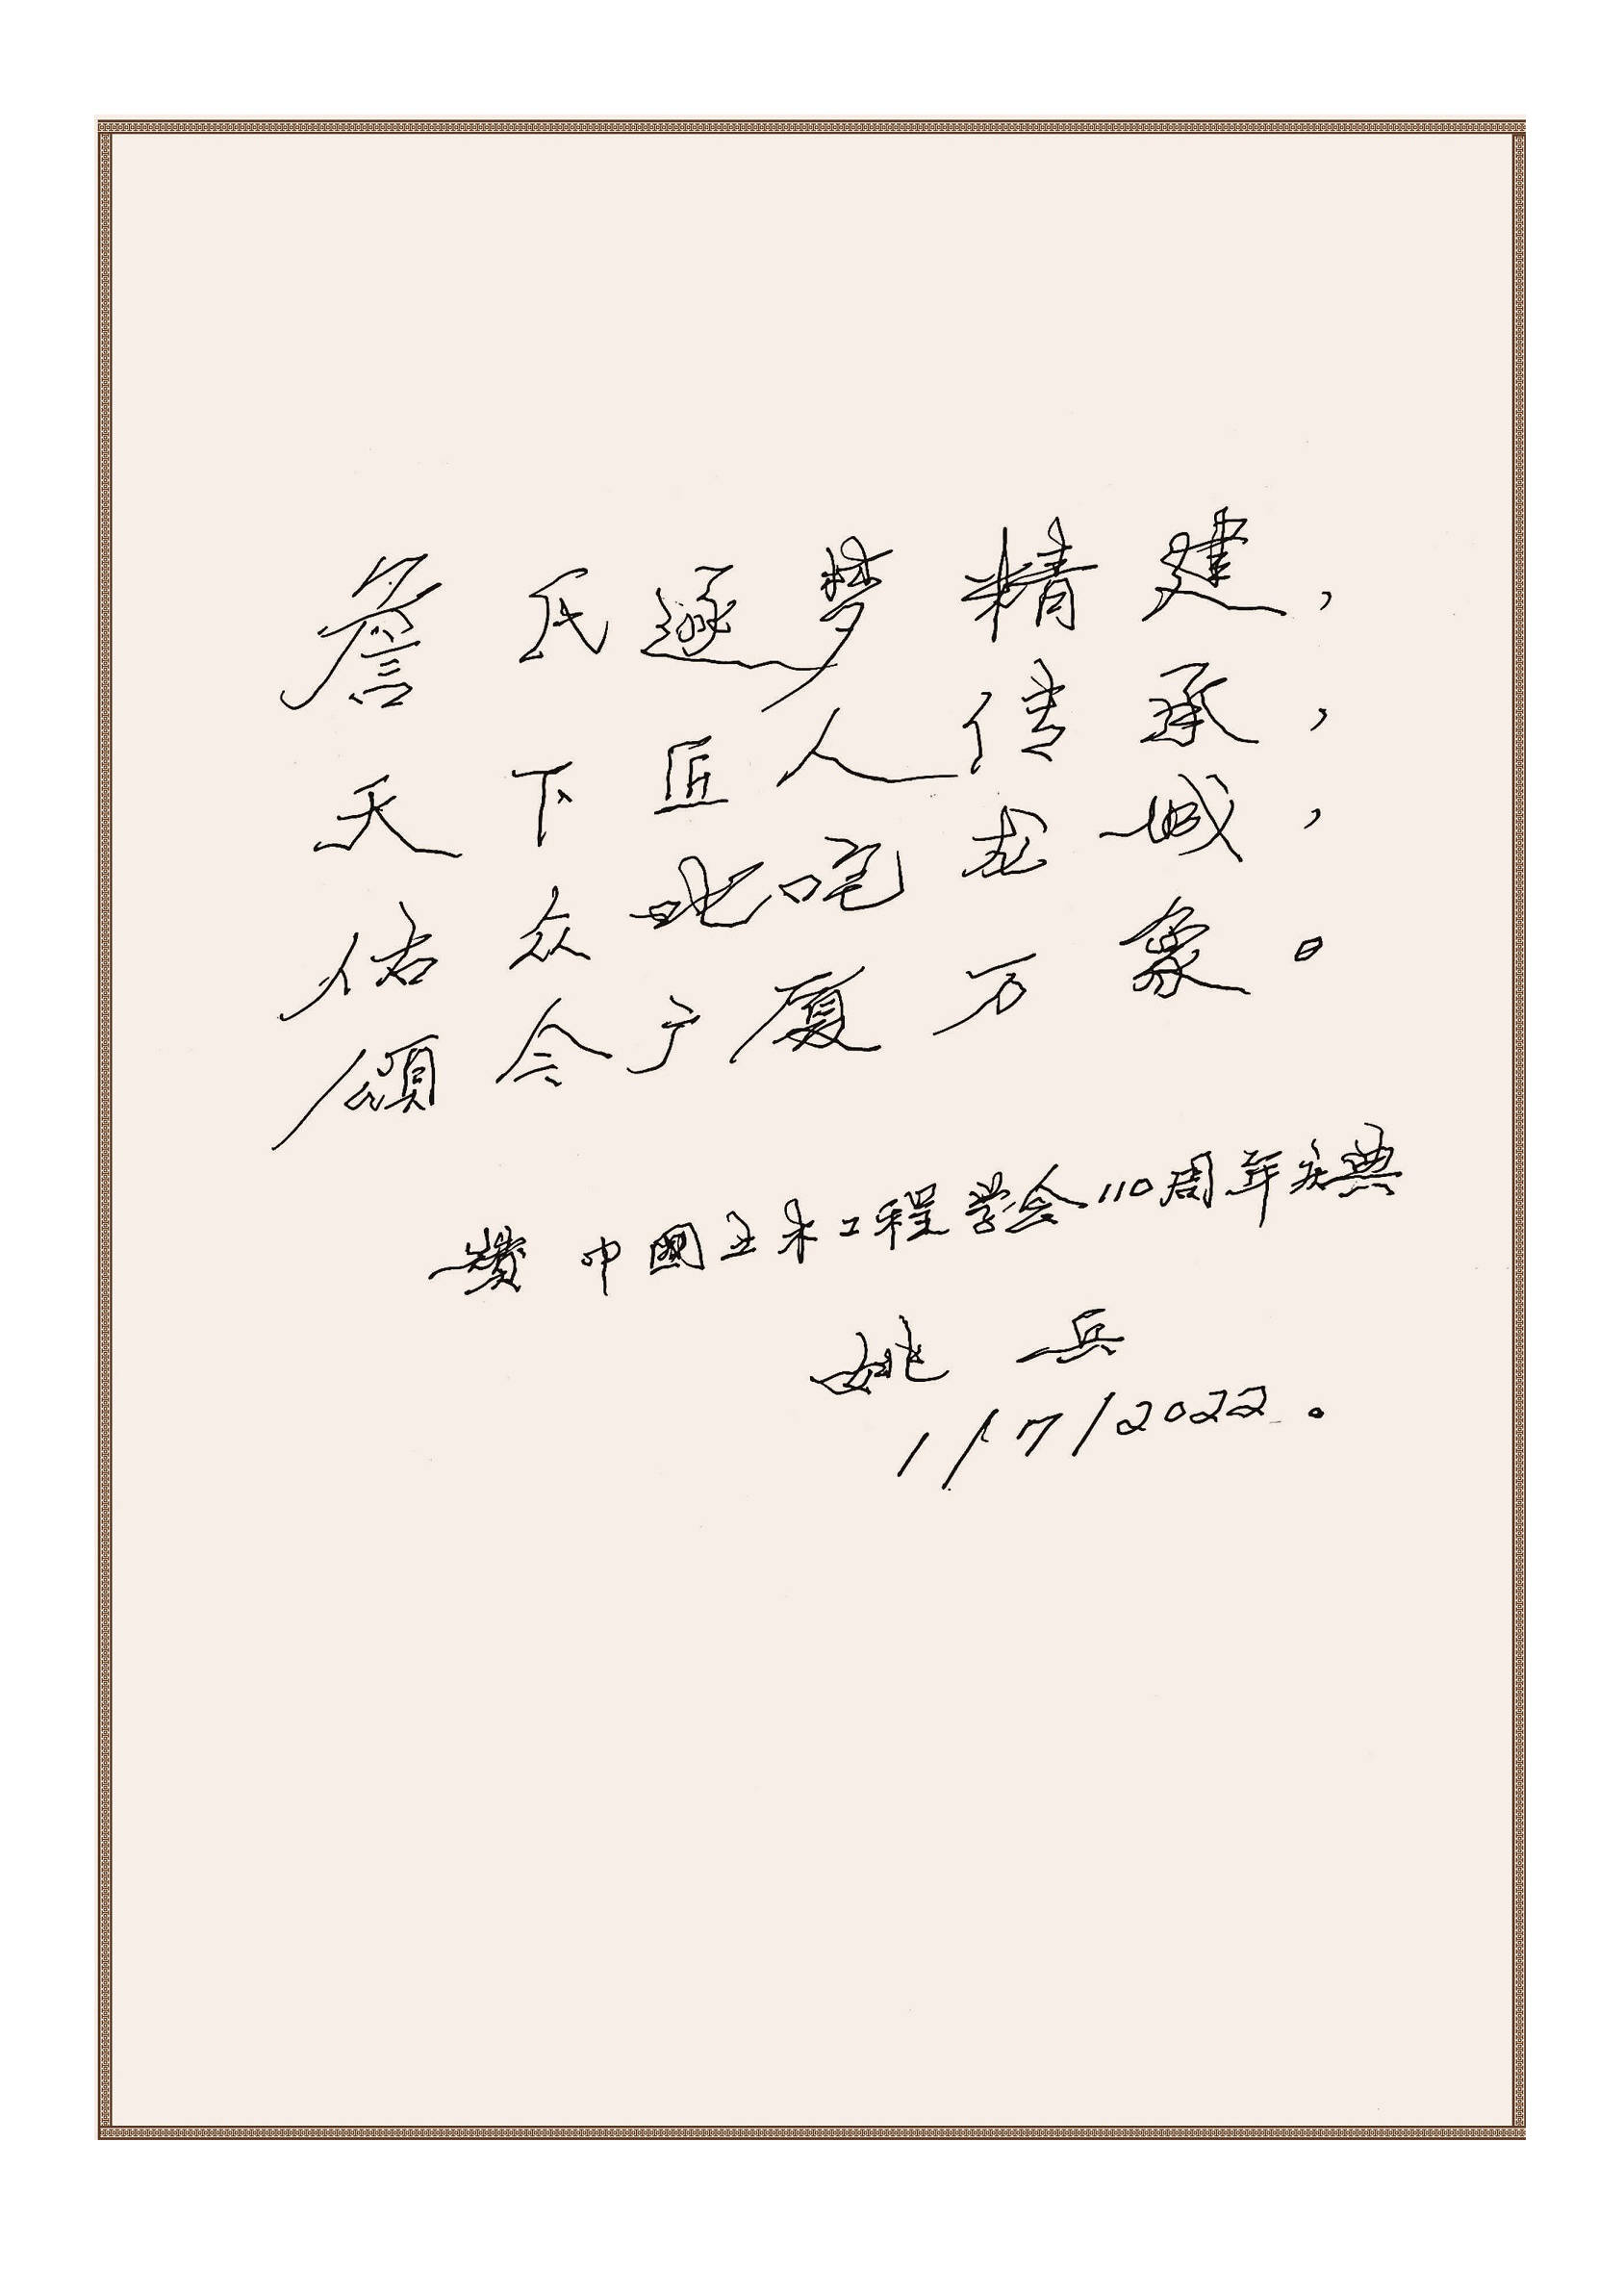 詹氏逐梦精建，
天下匠人传承，
佑众叱咤龙城，
頌今广厦万象。
赞 中國土木工程学会110周年庆典
姚兵
1/7/2022.